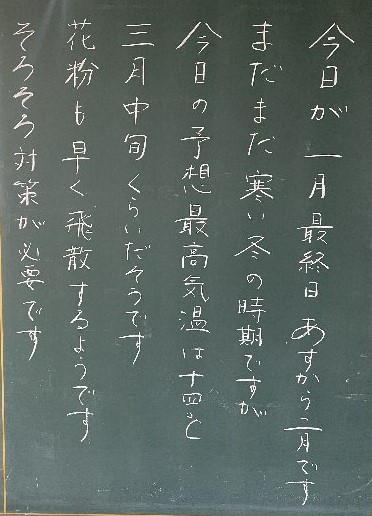 今日が一月最終日あすから二月です
まだまだ寒い冬の時期ですが
今日の予想最高気温は十四と
三月中旬くらいだそうです
花粉も早く飛散するようです
そろそろ対策が必要です